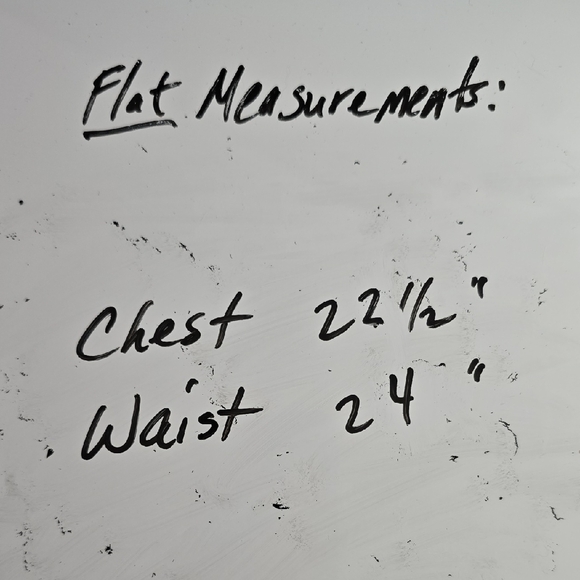 Flat Measurements:
Chest 22 1/2"
Waist 24"